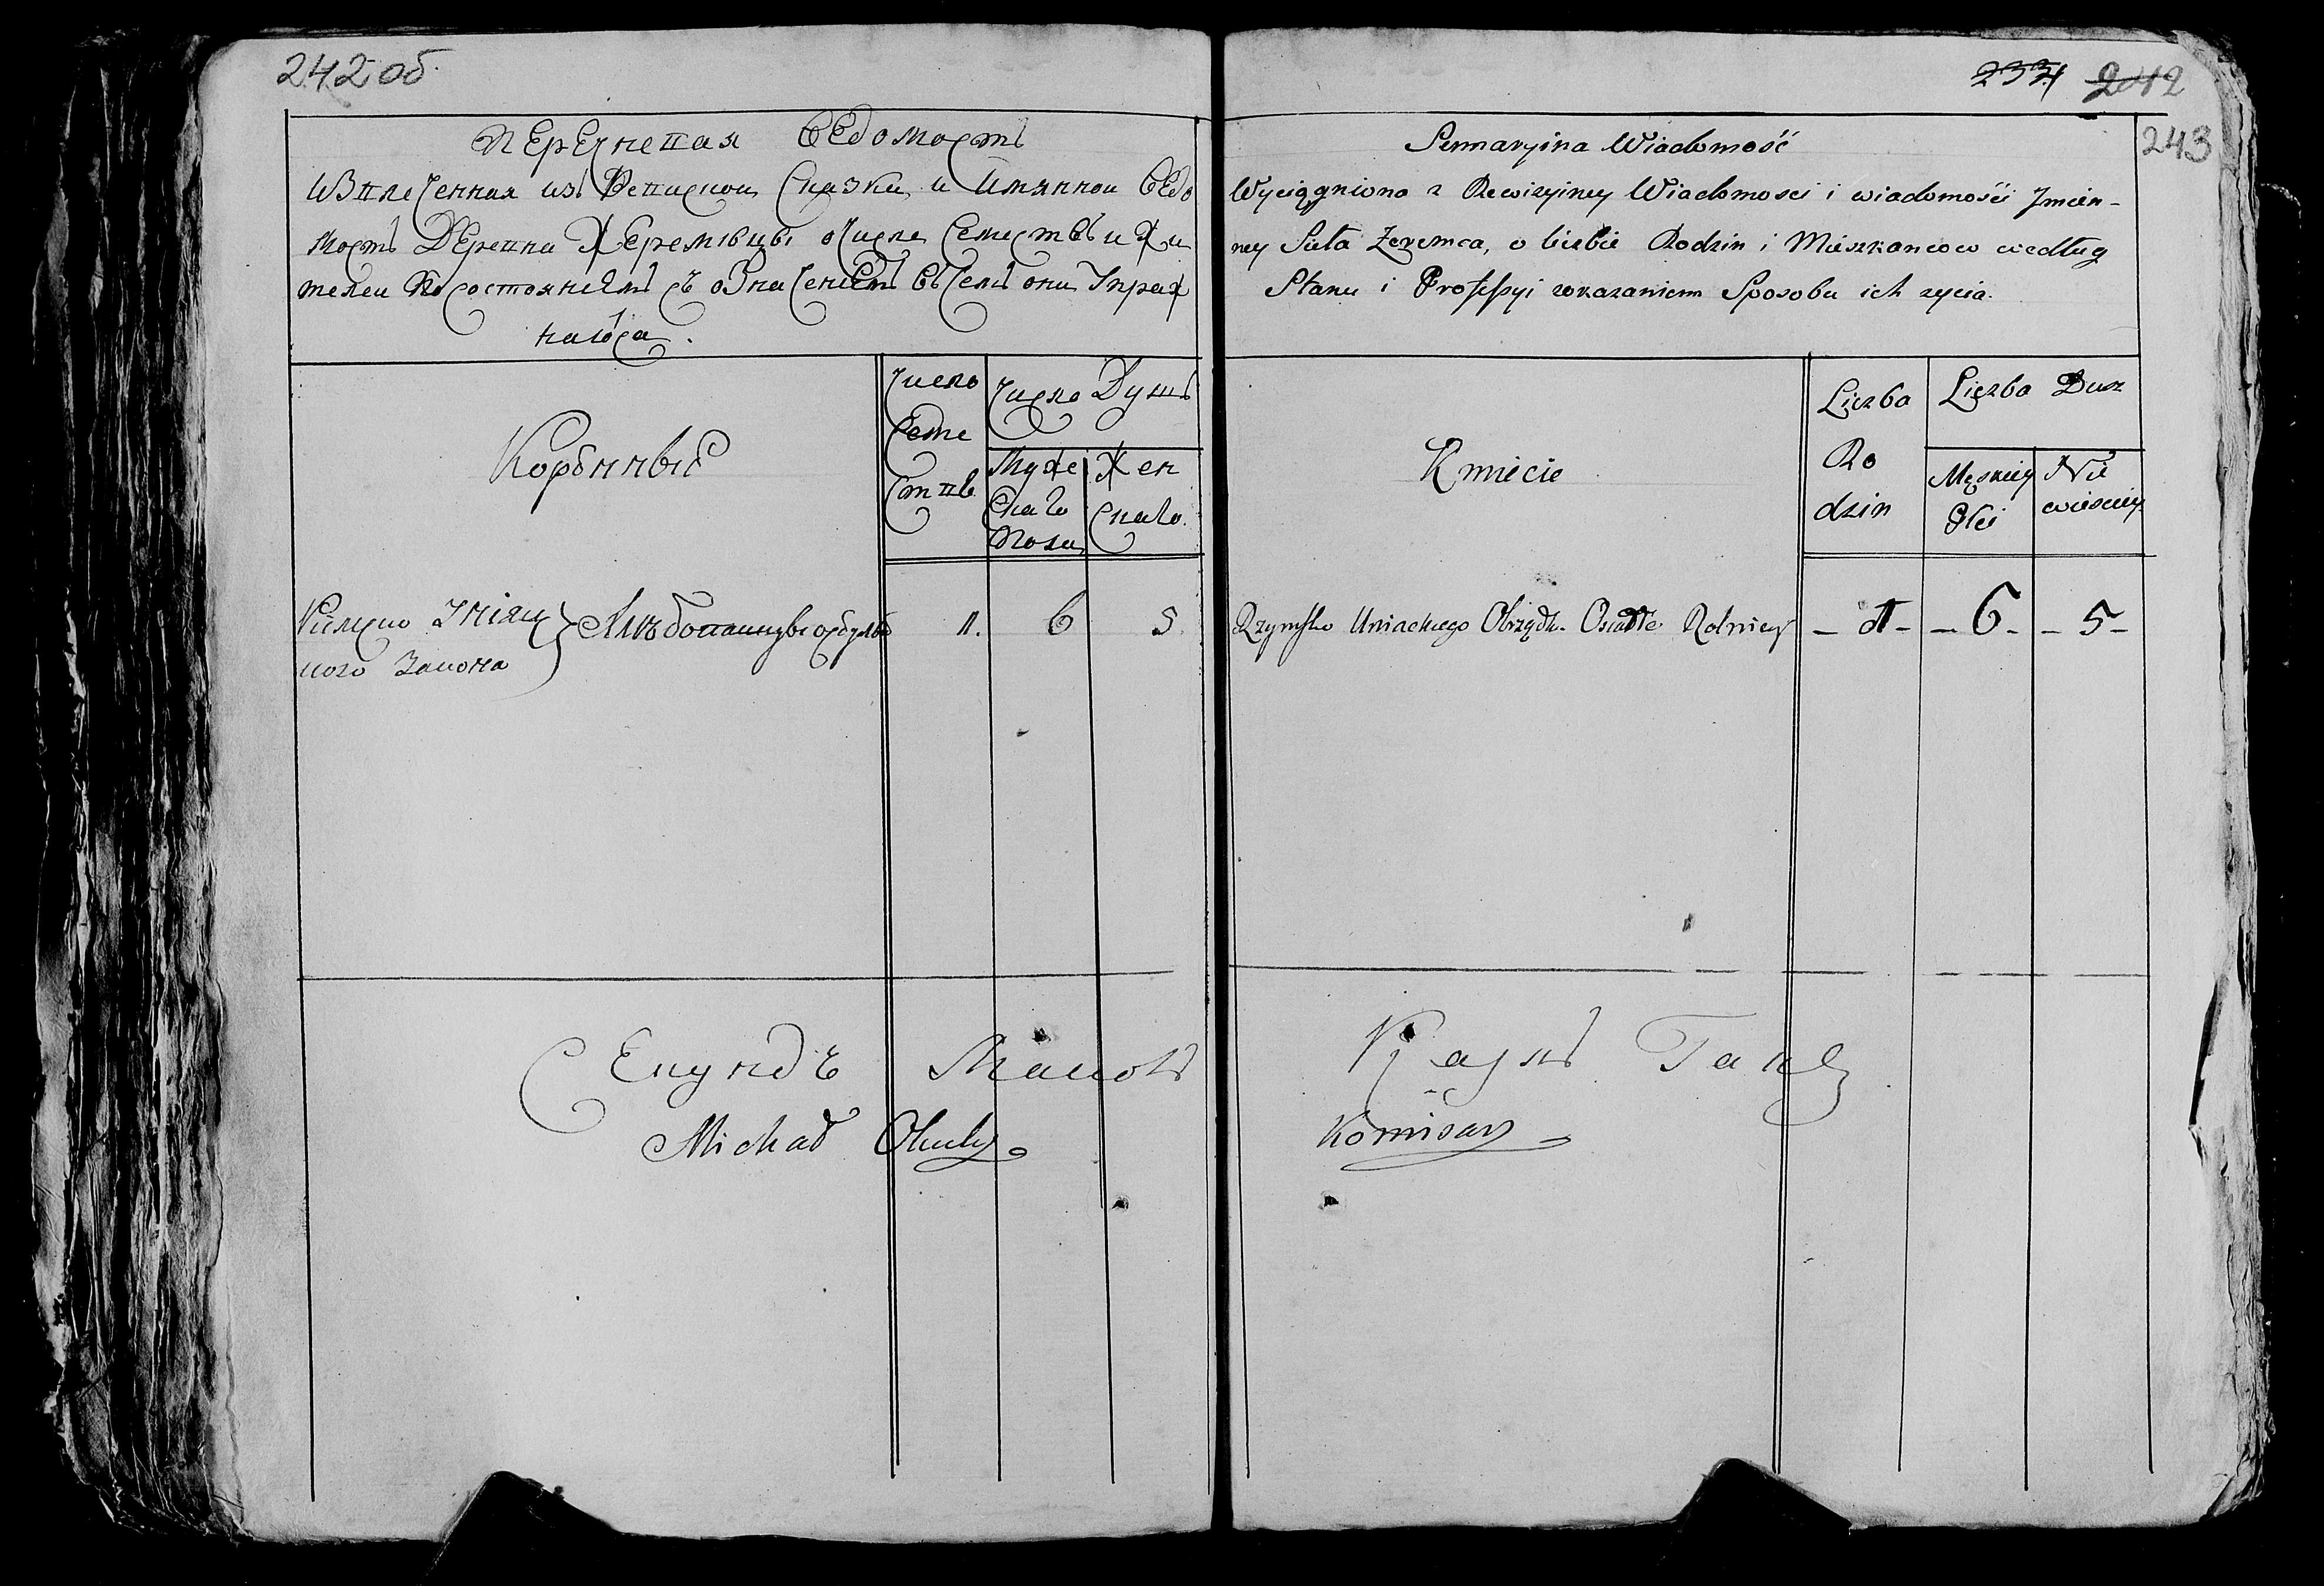 242 об.
Перечневая Ведомость
Извлеченная изъ Ревиской Сказки и Имянной Ведо
мость Деревни Жеремъвцы о числе Семествъ и Жи
телей по состояниемъ съ означениемъ въ чемъ они Упраж
няюса.
Коронные
Число
Семе
ствъ
Число Душъ
Муже
скаго
Пола
Жен
скаго.
Римско Унияц
кого Закона } Хлѣбопашцы
1. 6 5
234 242
243
Summaryina Wiadomość
Wyciągniona z Rewizyiney Wiadomosci i wiadomości Jmien-
ney Siela Zeremca, o liczbie Rodzin i Mieszkancow według
Stanu i Professyi wkazaniem Sposobu ich zycia.
Kmiecie
Liczba
Ro
dzin
Liczba Dusz
Męskiey
Płci
Nie
wiesciey
Rzymsko Uniackiego Obrządk. Osiadłe Rolnicy – 1 – – 6 – – 5 –
Секундъ Маиоръ
Michał
Komisarz